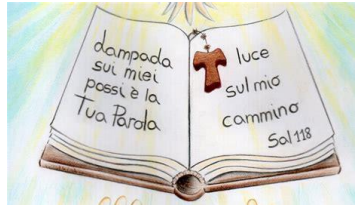 dampada
sui miei
passi è la
Tua Parola
luce
sul mio
cammino
Sal 118